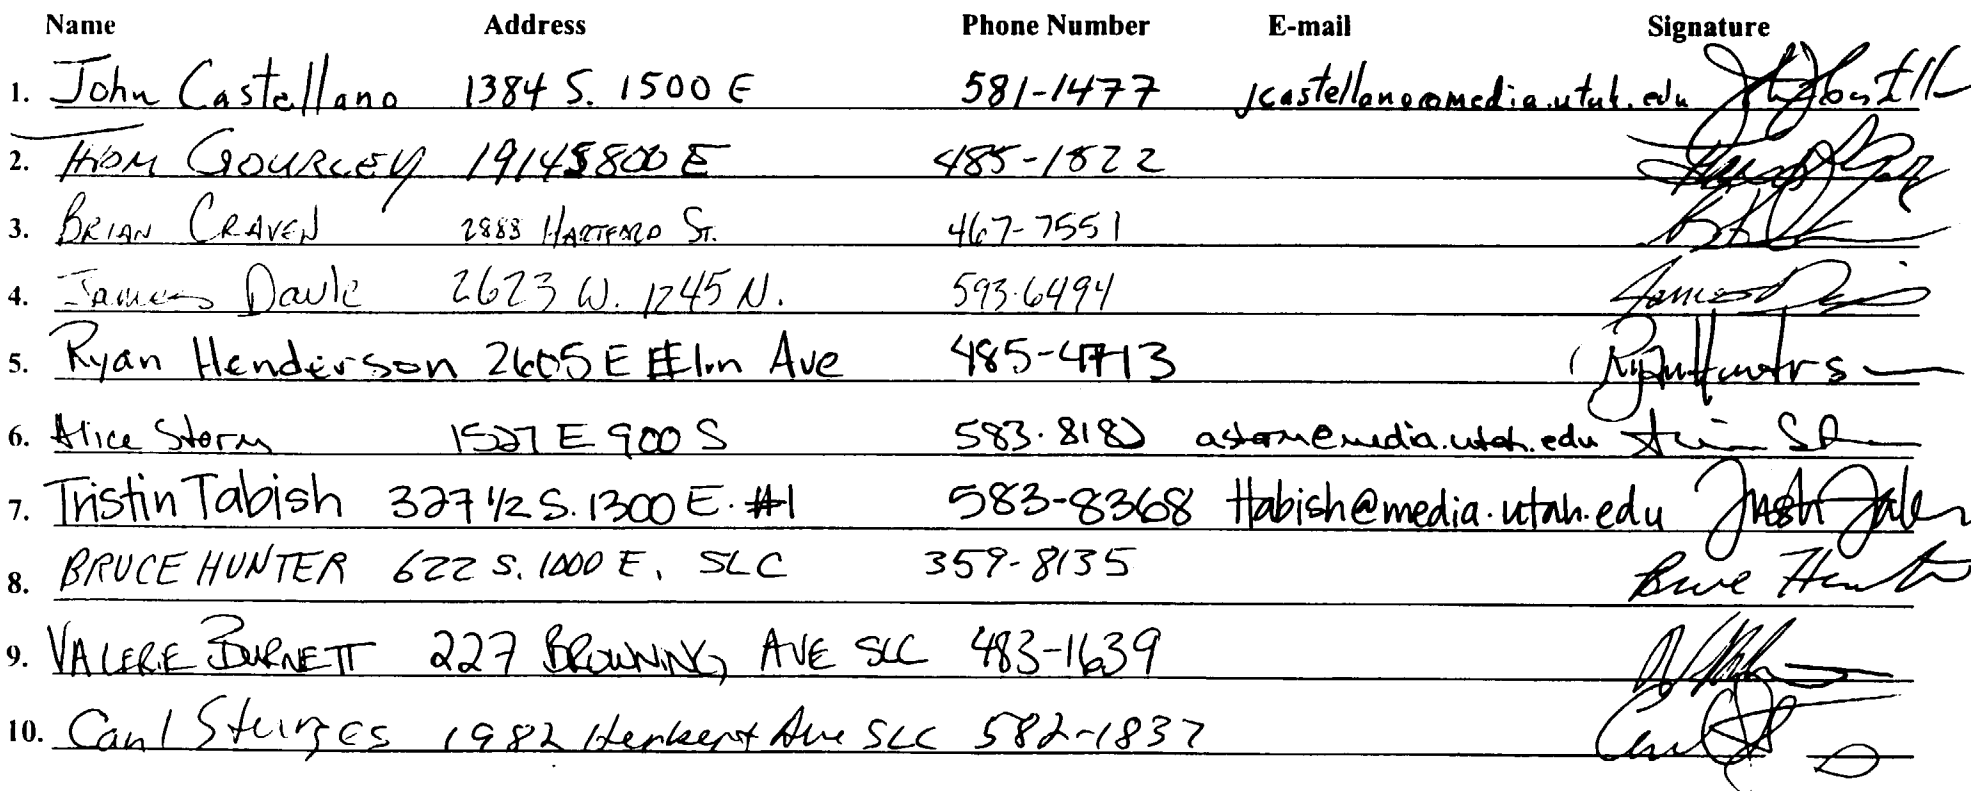 Name Address Phone Number E-mail Signature
1. John Castellano 1384 S. 1500 E 581-1477 jcastellano@media.utah.edu
2. THOM GOURLEY 1914 S 800 E 485-1822
3. BRIAN CRAVEN 2888 HARTFORD ST. 467-7551
4. James Davic 2623 W. 1245 N. 593-6494
5. Ryan Henderson 2605 E Elm Ave 485-4713
6. Alice Storm 1527 E 900 S 583-8182 astorm@media.utah.edu
7. Tristin Tabish 327 1/2 S. 1300 E. #1 583-8368 ttabish@media.utah.edu
8. BRUCE HUNTER 622 S. 1000 E, SLC 359-8135 Bruce Hunter
9. VALERIE BURNETT 227 BROWNING AVE SLC 483-1639
10. Carl Sturges 1982 Ave SLC 582-1837